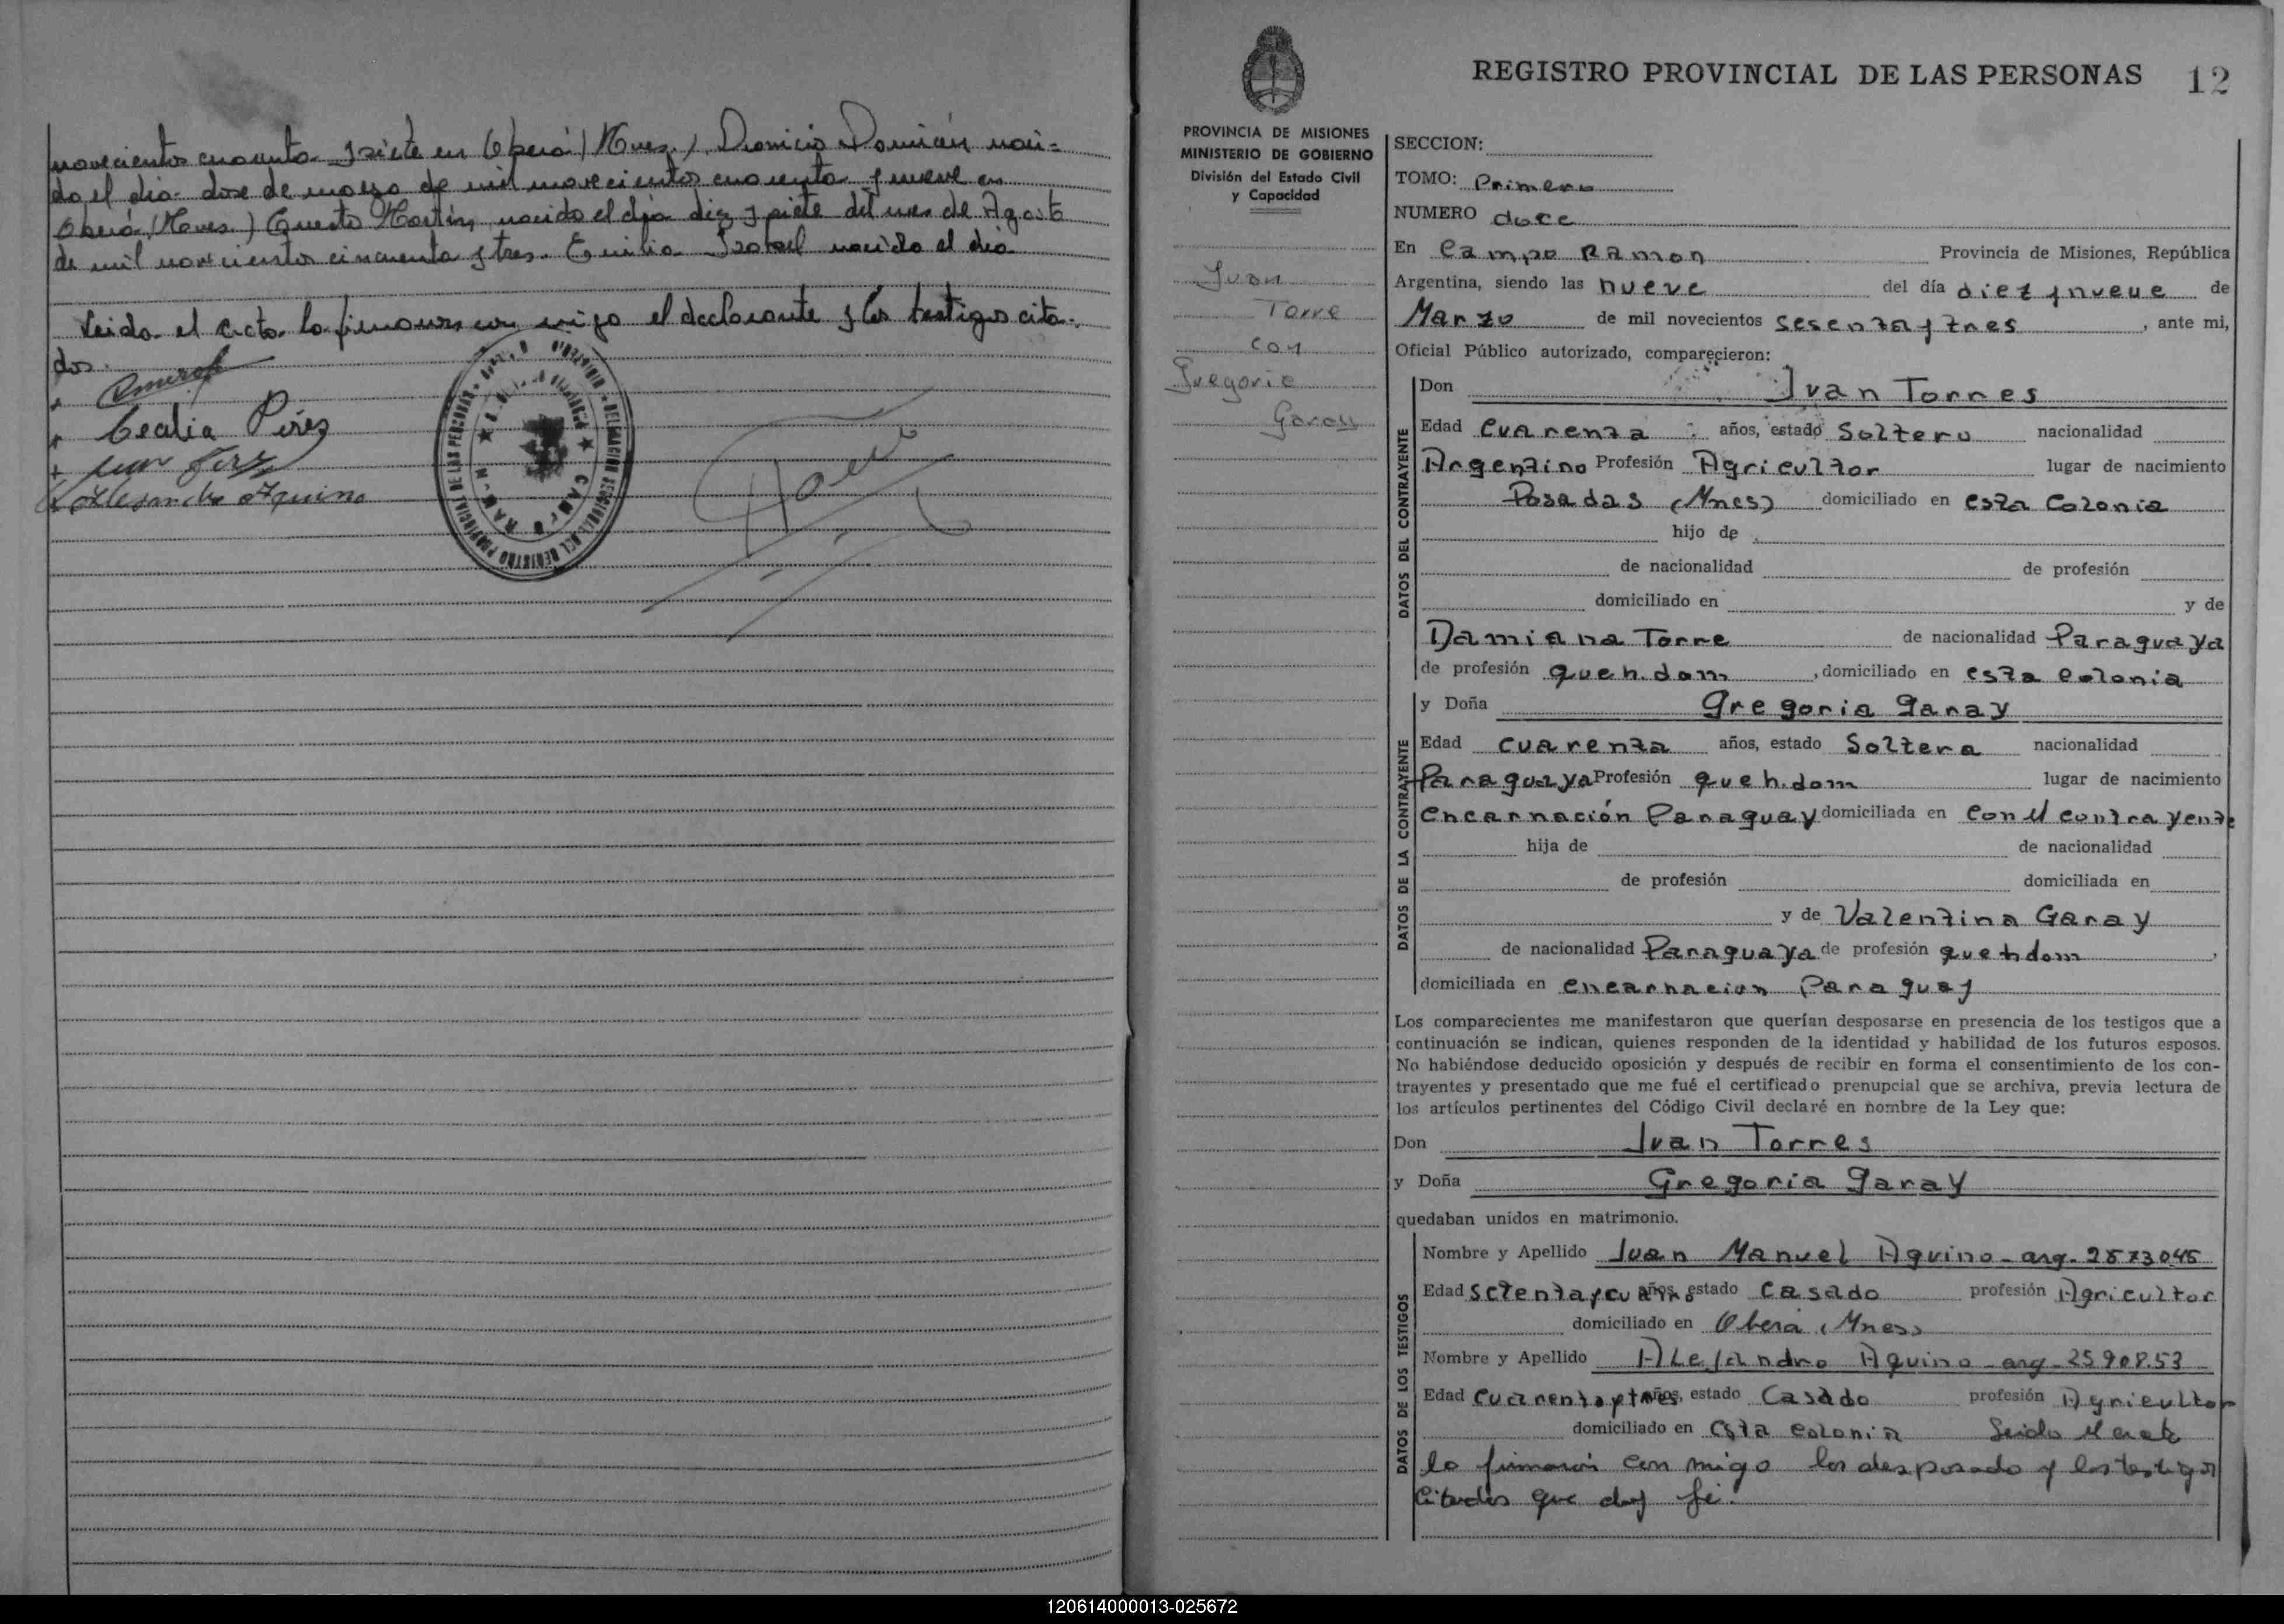 novecientos cuarenta y siete en Oberá (Mnes.) Dionicio Damián naci=
do el dia dose de marzo de mil novecientos cuarenta y nueve en
Oberá (Mnes.) Ernesto Martín, nacido el día diez y siete del mes de Agosto
de mil novecientos cincuenta y tres. Emilia Isabel nacida el dia
Leida el acta la firmaron con migo el declarante y los testigos cita-
dos.
Cecilia Pirez
Alesandro Aquino
REGISTRO PROVINCIAL DE LAS PERSONAS 12
PROVINCIA DE MISIONES
MINISTERIO DE GOBIERNO
División del Estado Civil
y Capacidad
Juan
Torre
con
Gregoria
Garay
SECCION:
TOMO: Primero
NUMERO doce
En Campo Ramon Provincia de Misiones, República
Argentina, siendo las nueve del día diez y nueve de
Marzo de mil novecientos sesenta y tres, ante mi,
Oficial Público autorizado, comparecieron:
DATOS DEL CONTRAYENTE
Don Juan Torres
Edad Cuarenta años, estado Soltero nacionalidad
Argentino Profesión Agricultor lugar de nacimiento
Posadas (Mnes) domiciliado en esta Colonia
hijo de
de nacionalidad de profesión
domiciliado en y de
Damiana Torre de nacionalidad Paraguaya
de profesión queh. dom, domiciliado en esta colonia
DATOS DE LA CONTRAYENTE
y Doña Gregoria Garay
Edad cuarenta años, estado Soltera nacionalidad
Paraguaya Profesión queh. dom lugar de nacimiento
encarnación Paraguay domiciliada en con el contrayente
hija de de nacionalidad
de profesión domiciliada en
y de Valentina Garay
de nacionalidad Paraguaya de profesión queh dom,
domiciliada en encarnacion Paraguay
Los comparecientes me manifestaron que querían desposarse en presencia de los testigos que a
continuación se indican, quienes responden de la identidad y habilidad de los futuros esposos.
No habiéndose deducido oposición y después de recibir en forma el consentimiento de los con-
trayentes y presentado que me fué el certificado prenupcial que se archiva, previa lectura de
los artículos pertinentes del Código Civil declaré en nombre de la Ley que:
Don Juan Torres
y Doña Gregoria Garay
quedaban unidos en matrimonio.
DATOS DE LOS TESTIGOS
Nombre y Apellido Juan Manuel Aquino - arg - 2573045
Edad setenta y cuatro años, estado Casado profesión Agricultor
domiciliado en Oberá (Mnes)
Nombre y Apellido Alejandro Aquino - arg - 25908.53
Edad cuarenta y tres años, estado Casado profesión Agricultor
domiciliado en esta colonia Leida el acta
la firmaron con migo los desposado y los testigos
citados que doy fé.
120614000013-025672